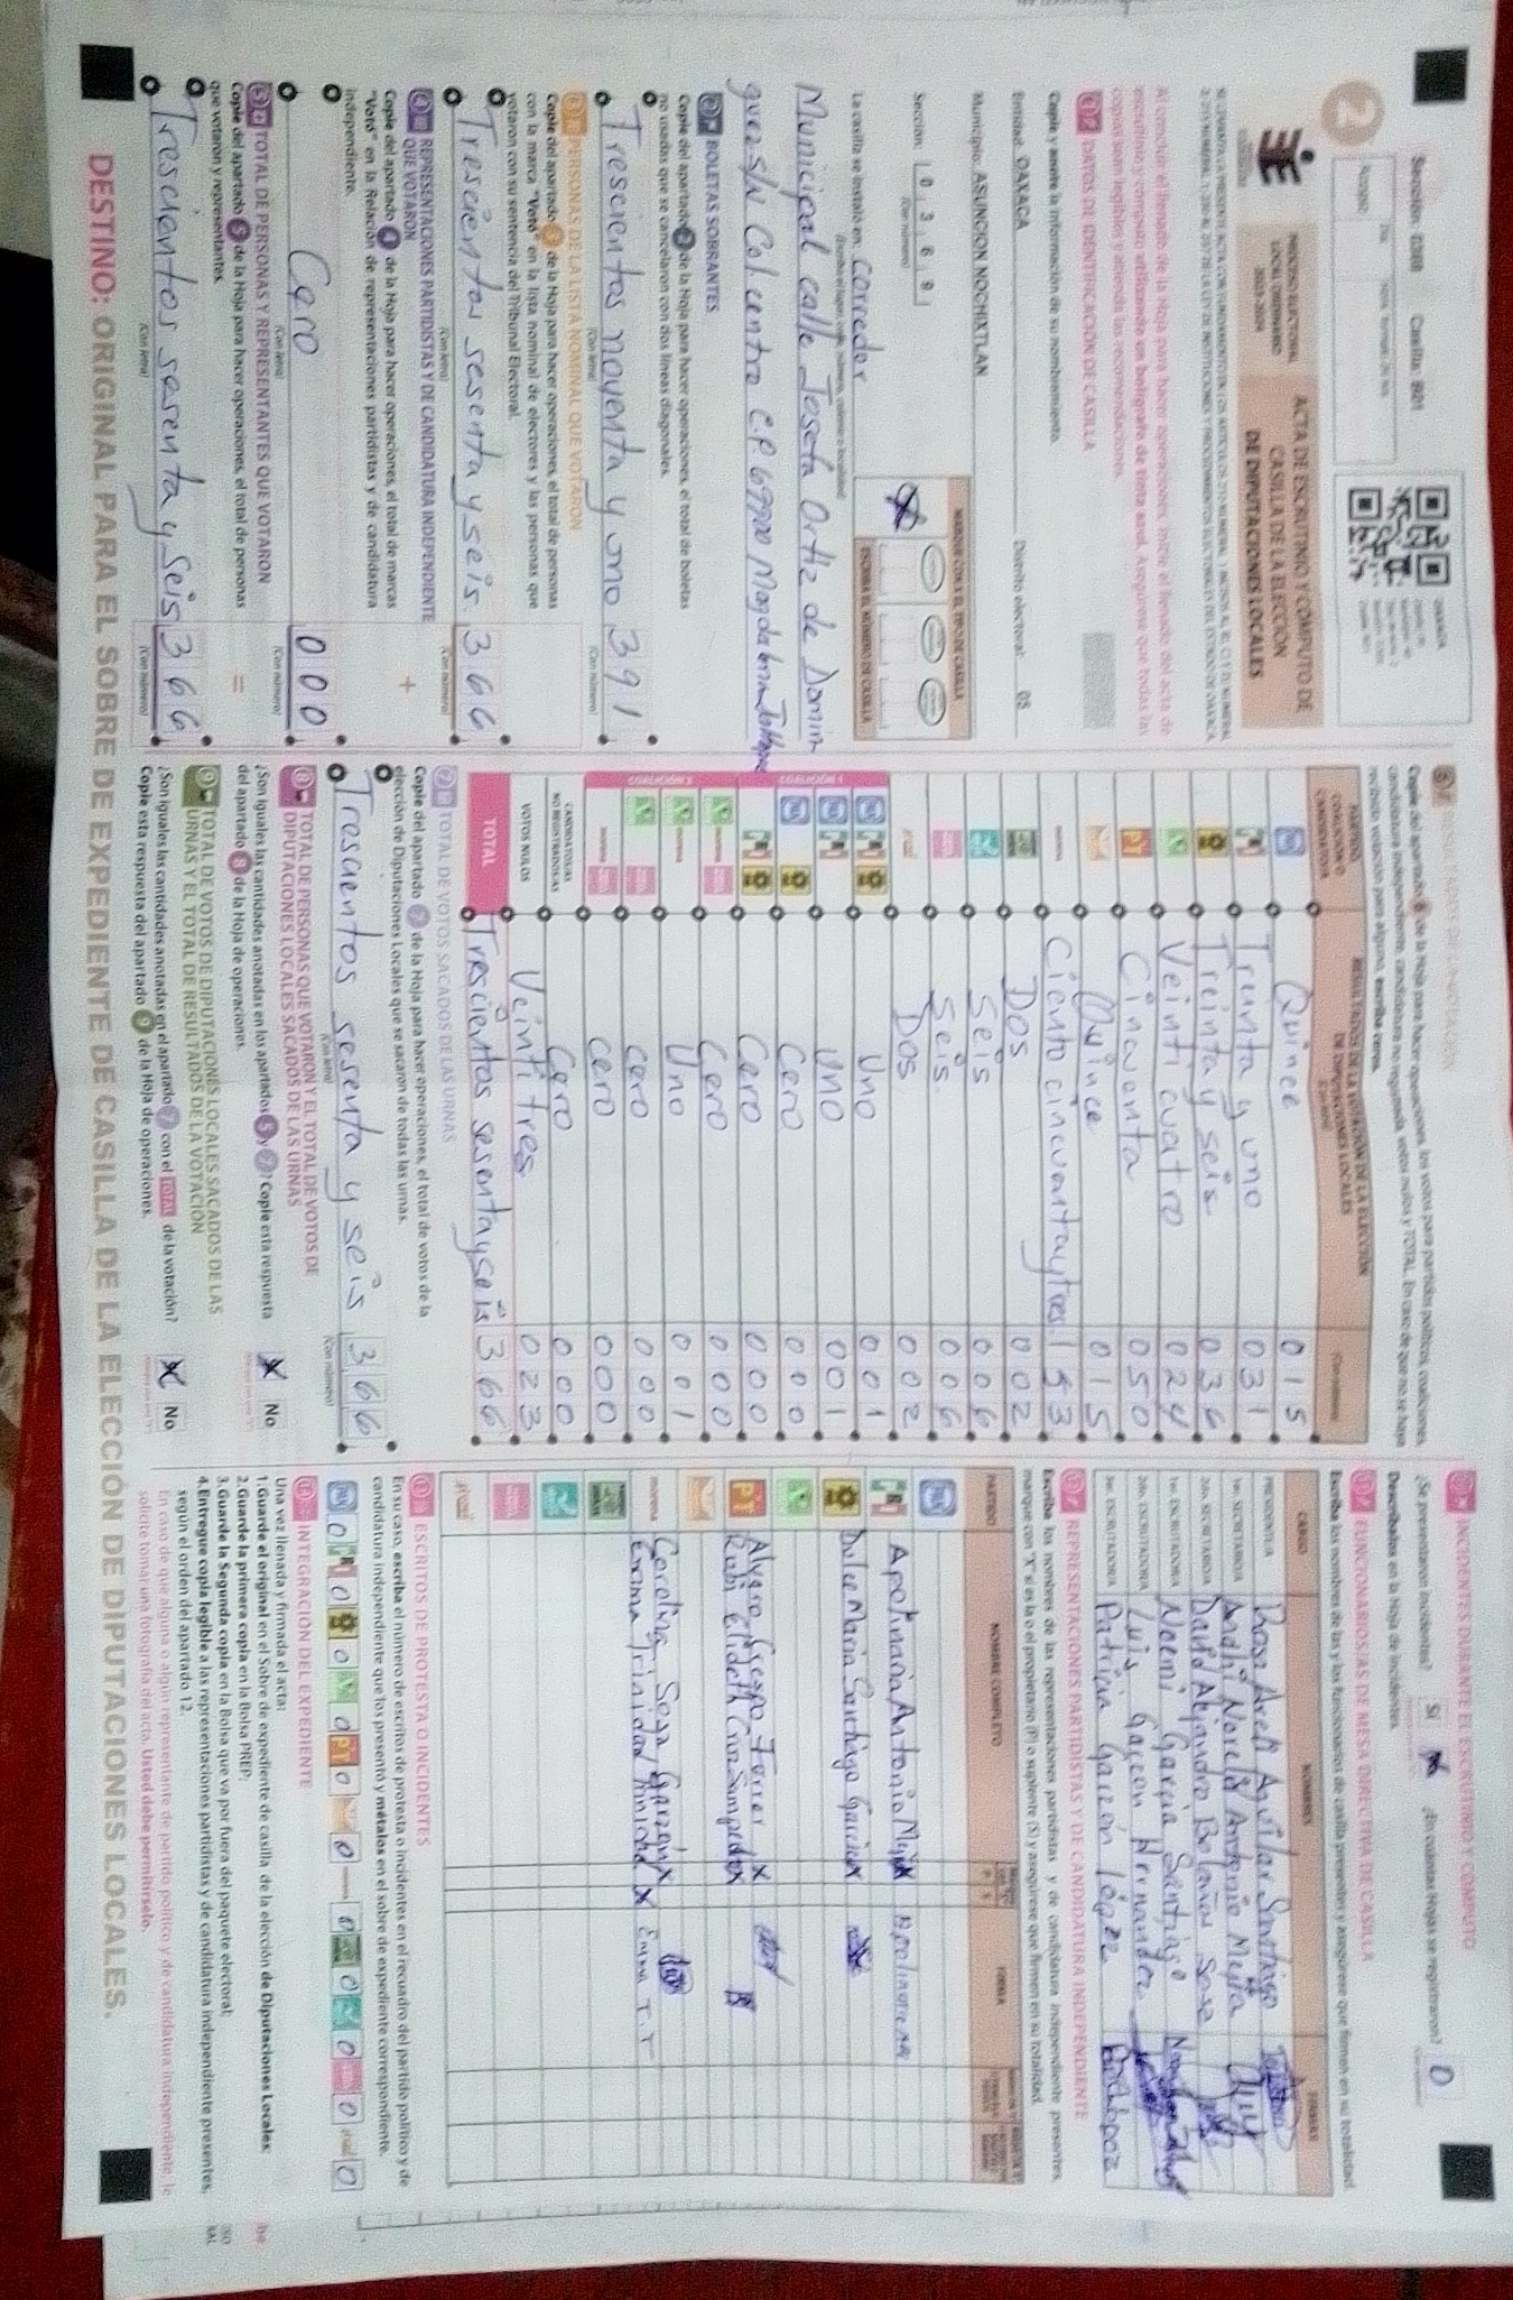 Sección: 0369 Casilla: B01
PROCESO ELECTORAL
LOCAL ORDINARIO
2023-2024
ACTA DE ESCRUTINIO Y CÓMPUTO DE
CASILLA DE LA ELECCIÓN
DE DIPUTACIONES LOCALES
2
Al concluir el llenado de la Hoja para hacer operaciones, inicie el llenado del acta de
escrutinio y cómputo utilizando un bolígrafo de tinta azul. Asegúrese que todas las
copias sean legibles y atienda las recomendaciones.
1 DATOS DE IDENTIFICACIÓN DE CASILLA
Copie y anote la información de su nombramiento.
Entidad: OAXACA Distrito electoral: 05
Municipio: ASUNCION NOCHIXTLAN
Sección: 0 3 6 9
(Con número)
MARQUE CON X EL TIPO DE CASILLA
ESCRIBA EL NÚMERO DE CASILLA
La casilla se instaló en: Corredor
Municipal calle Josefa Ortiz de Domin
guez S/N Col. centro C.P. 69900
2 BOLETAS SOBRANTES
Copie del apartado 2 de la Hoja para hacer operaciones, el total de boletas
no usadas que se cancelaron con dos líneas diagonales.
Trescientos noventa y uno 391
(Con letra) (Con número)
3 PERSONAS DE LA LISTA NOMINAL QUE VOTARON
Copie del apartado 3 de la Hoja para hacer operaciones, el total de personas
con la marca "Votó" en la lista nominal de electores y las personas que
votaron con su sentencia del Tribunal Electoral.
Trescientos sesenta y seis. 366
(Con letra) (Con número)
4 REPRESENTACIONES PARTIDISTAS Y DE CANDIDATURA INDEPENDIENTE
QUE VOTARON
Copie del apartado 4 de la Hoja para hacer operaciones, el total de marcas
"Votó" en la Relación de representaciones partidistas y de candidatura
independiente.
+
Cero 000
(Con letra) (Con número)
5 TOTAL DE PERSONAS Y REPRESENTANTES QUE VOTARON
Copie del apartado 5 de la Hoja para hacer operaciones, el total de personas
que votaron y representantes.
=
Trescientos sesenta y seis 366
(Con letra) (Con número)
Copie del apartado 6 de la Hoja para hacer operaciones, los votos para partidos políticos, coaliciones,
candidatura independiente, candidatura no registrada, votos nulos y TOTAL. En caso de que no se haya
recibido votación para alguno, escriba ceros.
PARTIDO,
COALICIÓN O
CANDIDATO/A
RESULTADOS DE LA VOTACIÓN DE LA ELECCIÓN
DE DIPUTACIONES LOCALES
PAN Quince 015
PRI Treinta y uno 031
Treinta y seis 036
Veinti cuatro 024
PT Cincuenta 050
Quince 015
morena Ciento cincuentaytres. 153
Dos 002
Seis 006
Seis. 006
Dos 002
COALICIÓN 1
PAN PRI Uno 001
PAN PRI UNO 001
PAN Cero 000
PRI Cero 000
COALICIÓN 2
morena Cero 000
morena Uno 001
cero 000
morena cero 000
CANDIDATOS/AS
NO REGISTRADOS/AS Cero 000
VOTOS NULOS Veinti tres 023
TOTAL Trescientos sesentayseis 366
7 TOTAL DE VOTOS SACADOS DE LAS URNAS
Copie del apartado 7 de la Hoja para hacer operaciones, el total de votos de la
elección de Diputaciones Locales que se sacaron de todas las urnas.
Trescientos sesenta y seis 366
(Con letra) (Con número)
8 TOTAL DE PERSONAS QUE VOTARON Y EL TOTAL DE VOTOS DE
DIPUTACIONES LOCALES SACADOS DE LAS URNAS
¿Son iguales las cantidades anotadas en los apartados 5 y 7? Copie esta respuesta
del apartado 8 de la Hoja de operaciones. X No
9 TOTAL DE VOTOS DE DIPUTACIONES LOCALES SACADOS DE LAS
URNAS Y EL TOTAL DE RESULTADOS DE LA VOTACIÓN
¿Son iguales las cantidades anotadas en el apartado 7 con el TOTAL de la votación?
Copie esta respuesta del apartado 9 de la Hoja de operaciones. X No
INCIDENTES DURANTE EL ESCRUTINIO Y CÓMPUTO
¿Se presentaron incidentes? Sí ¿En cuántas Hojas se registraron? 0
Descríbalos en la Hoja de incidentes.
FUNCIONARIOS/AS DE MESA DIRECTIVA DE CASILLA
Escriba los nombres de las y los funcionarios de casilla presentes y asegúrese que firmen en su totalidad.
CARGO NOMBRES FIRMAS
PRESIDENTE/A Rosa Areli Aguilar Santiago
1er. SECRETARIO/A Andhi Antonio Mejía
2do. SECRETARIO/A David Alejandro Bolaños Sosa
1er. ESCRUTADOR/A Noemi Garcia Santiago
2do. ESCRUTADOR/A Luis Garcon Hernandez
3er. ESCRUTADOR/A Patricia Garzon lópez
REPRESENTACIONES PARTIDISTAS Y DE CANDIDATURA INDEPENDIENTE
Escriba los nombres de las representaciones partidistas y de candidatura independiente presentes,
marque con "X" si es la o el propietario (P) o suplente (S) y asegúrese que firmen en su totalidad.
PARTIDO NOMBRE COMPLETO FIRMA
PAN
PRI Apolinaria Antonio Mejia X
Dulce Maria Santiago Garcia X
PT Alvaro Crespo Ferrer X
Rubi Elideth Cruz Sampedro X
morena Carolina Sosa Garzón X
Emma Trinidad X Emma T. T
ESCRITOS DE PROTESTA O INCIDENTES
En su caso, escriba el número de escritos de protesta o incidentes en el recuadro del partido político y de
candidatura independiente que los presentó y métalos en el sobre de expediente correspondiente.
PAN 0 PRI 0 0 0 PT 0 0 0 0 0 0 0
INTEGRACIÓN DEL EXPEDIENTE
Una vez llenada y firmada el acta:
1. Guarde el original en el Sobre de expediente de casilla de la elección de Diputaciones Locales;
2. Guarde la primera copia en la Bolsa PREP;
3. Guarde la Segunda copia en la Bolsa que va por fuera del paquete electoral;
4. Entregue copia legible a las representaciones partidistas y de candidatura independiente presentes,
según el orden del apartado 12.
En caso de que alguna o algún representante de partido político y de candidatura independiente, le
solicite tomar una fotografía del acta. Usted debe permitírselo.
DESTINO: ORIGINAL PARA EL SOBRE DE EXPEDIENTE DE CASILLA DE LA ELECCIÓN DE DIPUTACIONES LOCALES.